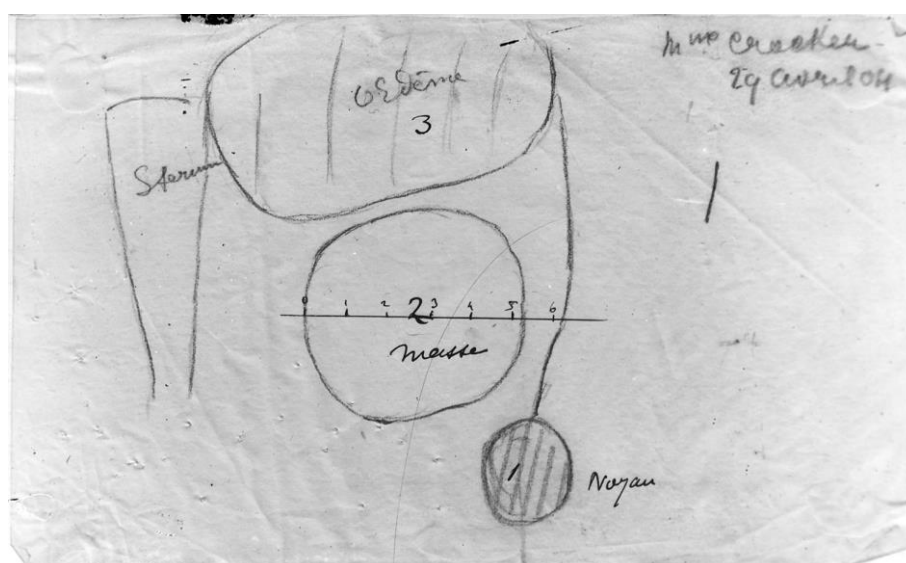 Mme Crocker
29 avril 04
OEdème
3
Sternum
0 1 2 2 3 4 5 6
masse
1
Noyau